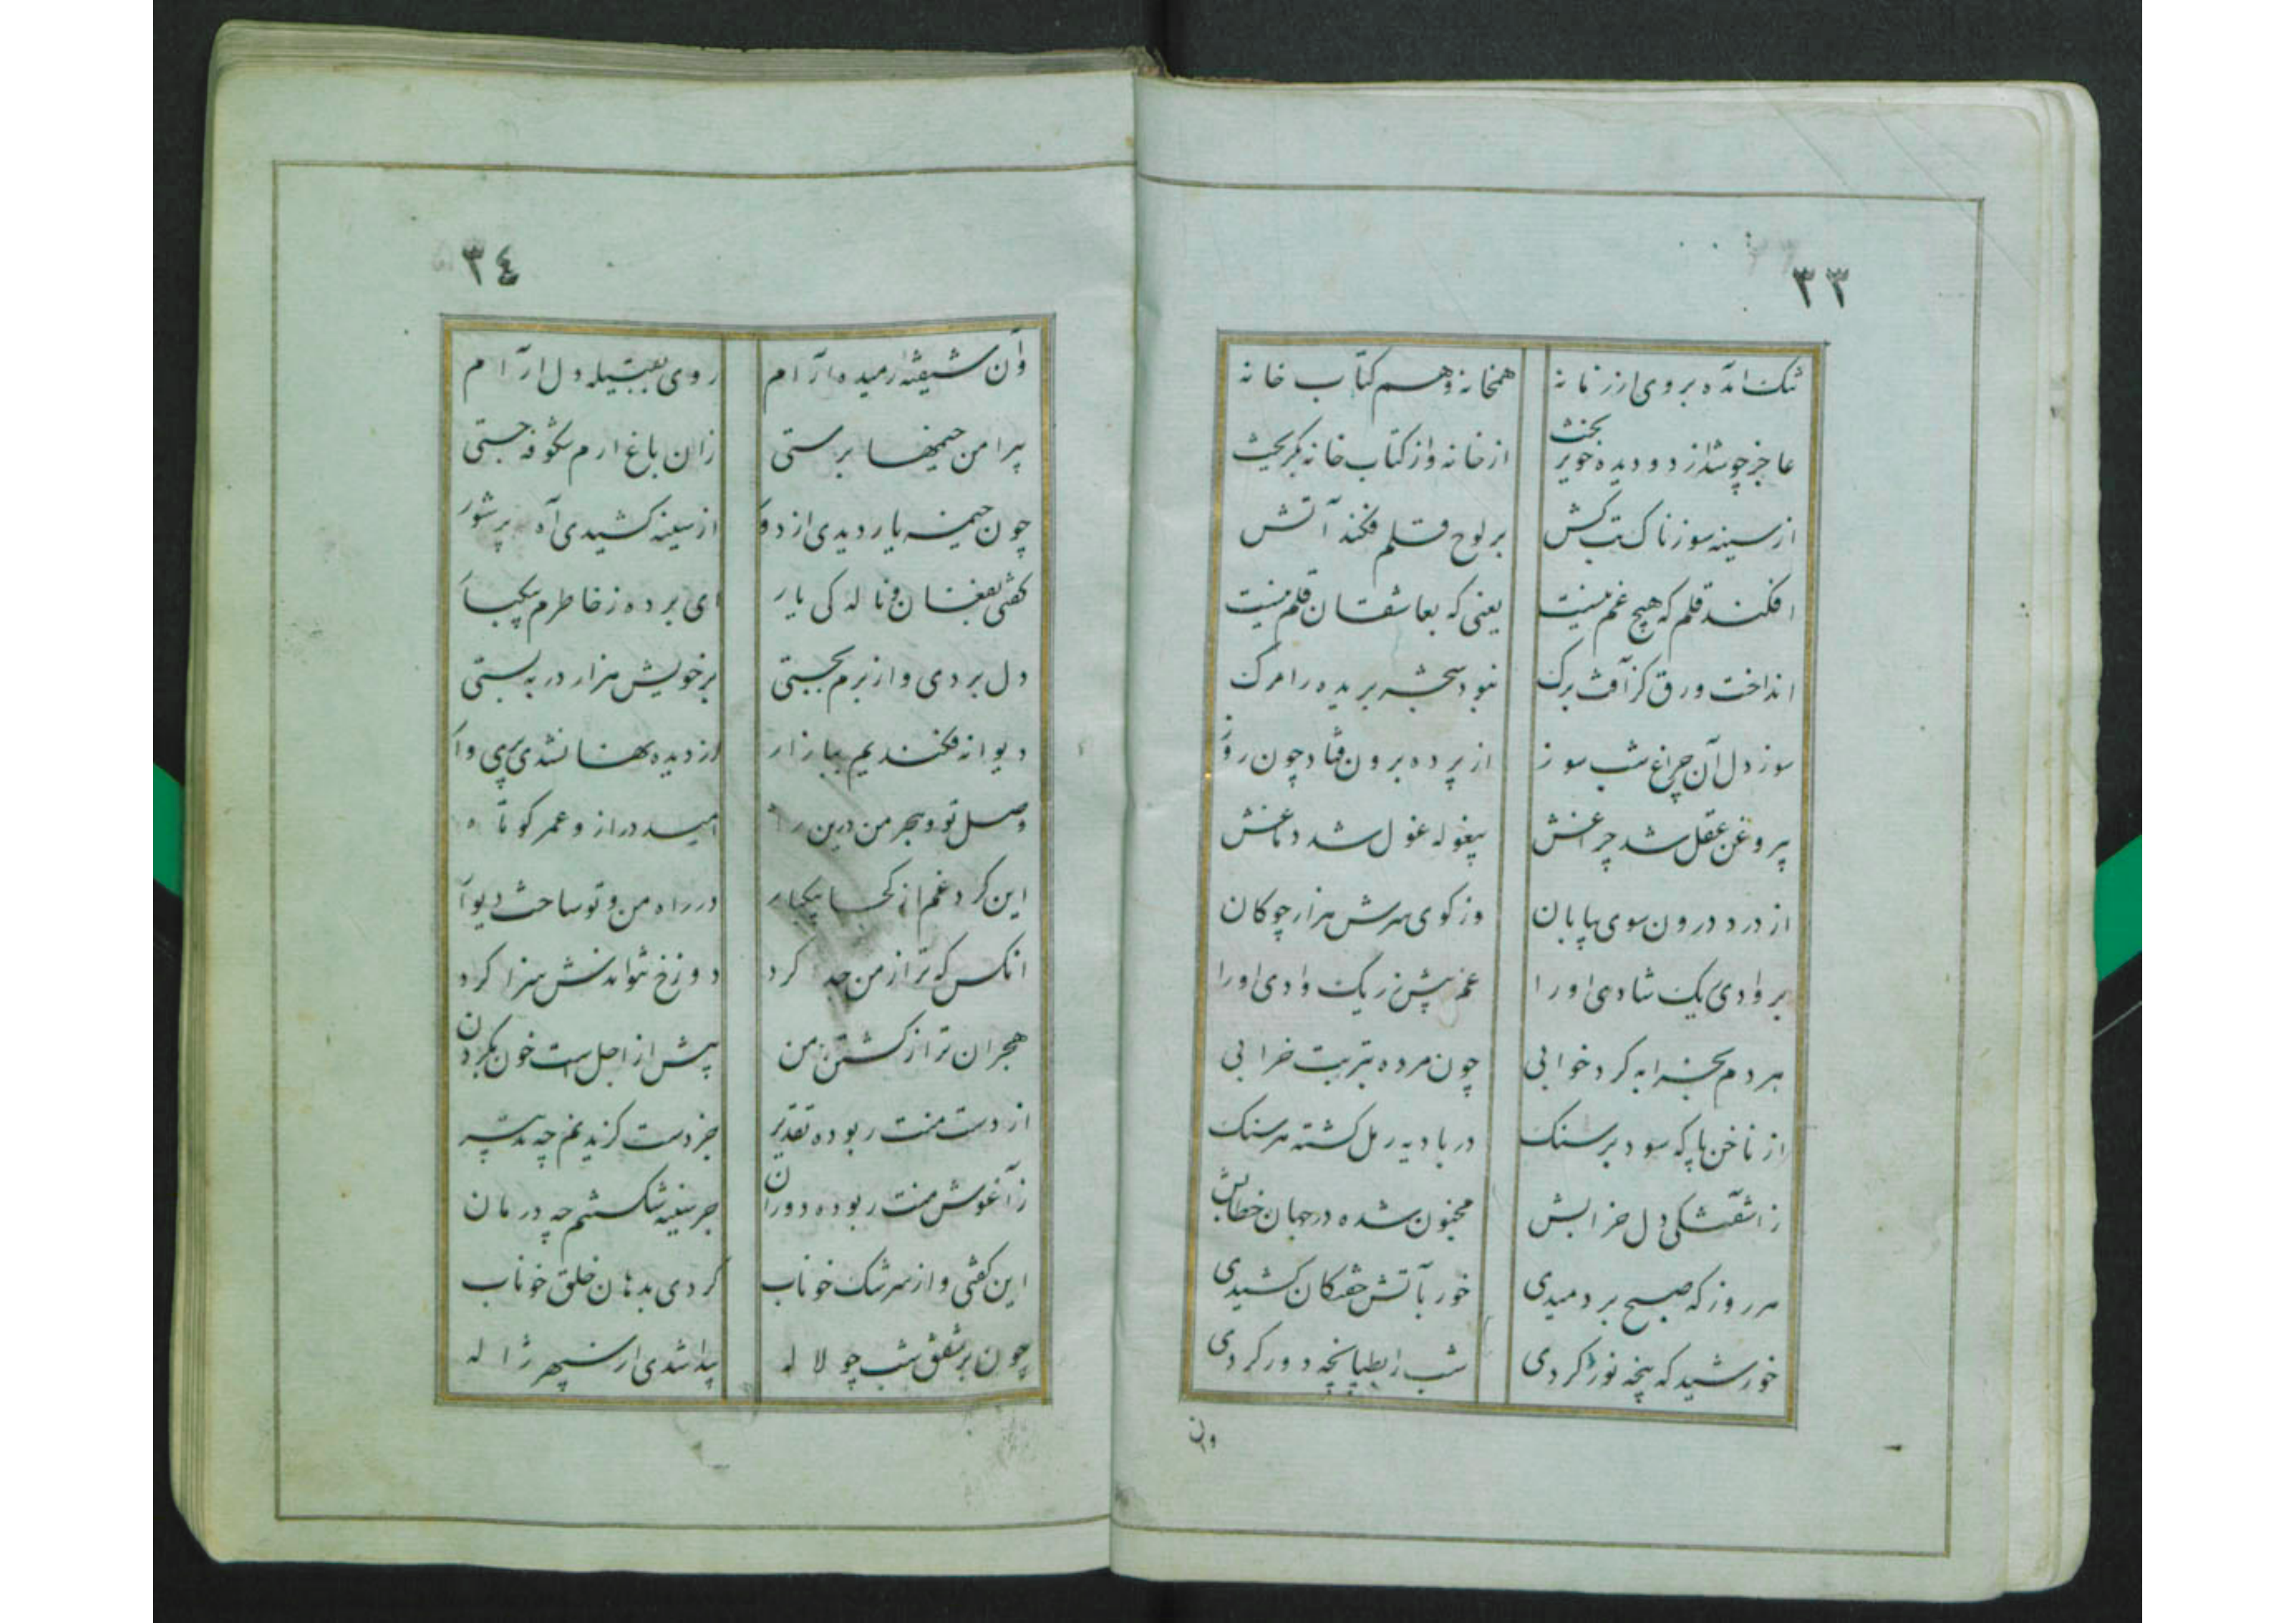 ٣٣
تنک آمده بروی از زمانه همخانه و هم کتاب خانه
عاجز چو شد از دو دیده خون ریخت از خانه و از کتاب خانه بگریخت
از سینه سوزناک تب کش بر لوح و قلم فکند آتش
افکند قلم که هیچ غم نیست یعنی که بعاشقان قلم نیست
انداخت ورق کز آفت برک نبود سر بریده را مرک
سوز دل آن چراغ شب سوز از پرده برون فتاد چون روز
بی روغن عقل شد چراغش بیغوله غول شد دماغش
از درد درون سوی بیابان وز کوی سرش هزار چوکان
بر وادی یک شادی او را غم بیش ز ریک وادی او را
هر دم بخرابه کرد خوابی چون مرده بتربت خرابی
از ناخن پا که سود بر سنک در بادیه رمل کشته هر سنک
ز آشفتکی دل خرابش مجنون شده در جهان خطابش
هر روز که صبح بردمیدی خور بآتش خفتکان کشیدی
خورشید که پنجه نور کردی شب را بطپانچه دور کردی
وان
٣٤
وان شیفته رمیده آرام روی بقبیله دلارام
پیرامن خیمها برستی زان باغ ارم شکوفه جستی
چون خیمه یار دیدی از دور از سینه کشیدی آه پر شور
کفتی بفغان و ناله کی یار ای برده ز خاطرم بیکبار
دل بردی و از برم بجستی بر خویش هزار در به بستی
دیوانه فکندیم ببازار از دیده نهان شدی پری وار
وصل تو و هجر من درین راه امید دراز و عمر کوتاه
این کرد غم از کجا بیکبار در راه من و تو ساخت دیوار
انکس که ترا ز من جدا کرد دوزخ نتواندش سزا کرد
هجران تو از کشتن من پیش از اجل است خون بکردن
از دست منت ربوده تقدیر جز دست کزیدنم چه تدبیر
ز آغوش منت ربوده دوران جز سینه شکستنم چه درمان
این کفتی و از سرشک خوناب کردی بدهان خلق خوناب
چون بر شفق شب چو لاله پیدا شدی از سپهر ژاله